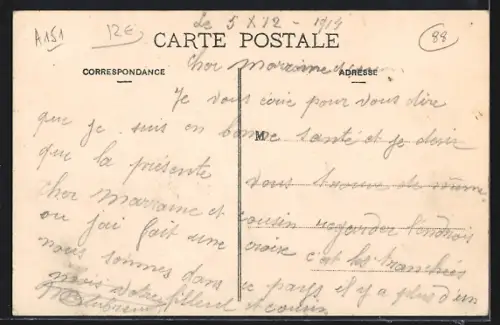 A151
12€
Le 5 X 12 - 1914
88
CARTE POSTALE
CORRESPONDANCE
ADRESSE
Cher Marraine et
Je vous écrie pour vous dire
que je suis en bonne santé et je désir
M
que la présente vous trouve de même
Cher Marraine et cousin regarder l'endrois
ou jai fait une croix c'at les tranchées
nous sommes dans ce pays et y a plus d'un
mois votre filleul et cousin